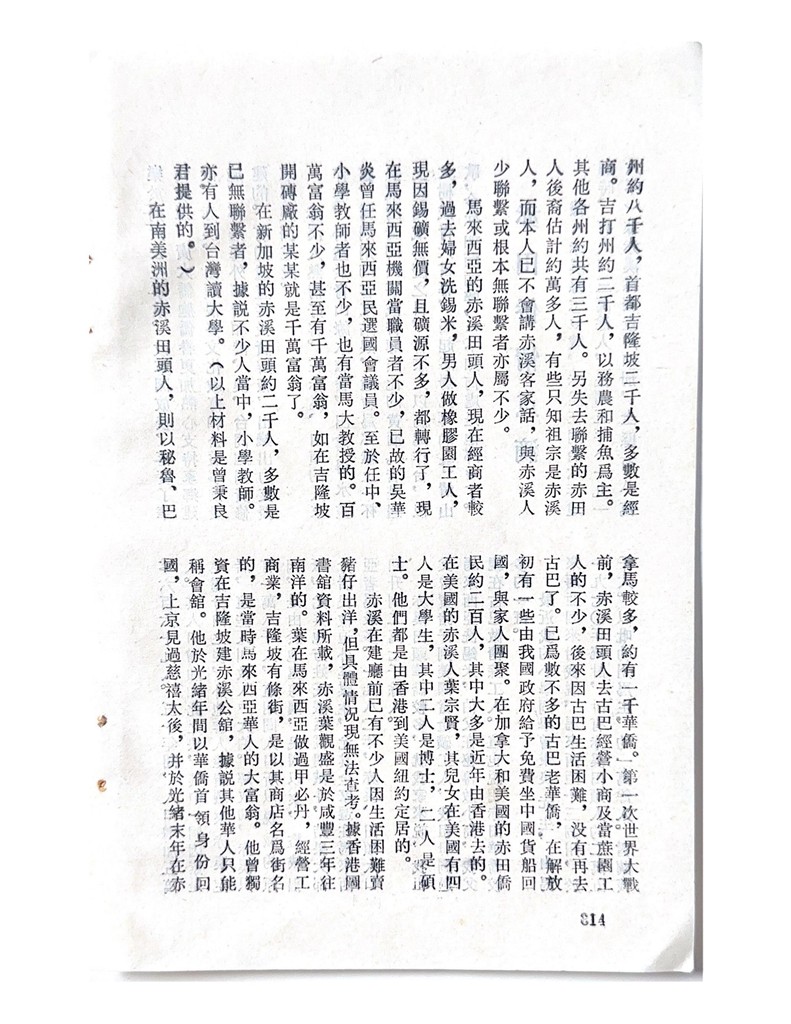 州約八千人，首都吉隆坡二千人，多數是經
商。吉打州約二千人，以務農和捕魚爲主。
其他各州約共有三千人。另失去聯繫的赤田
人後裔估計約萬多人，有些只知祖宗是赤溪
人，而本人已不會講赤溪客家話，與赤溪人
少聯繫或根本無聯繫者亦屬不少。
馬來西亞的赤溪田頭人，現在經商者較
多，過去婦女洗錫米，男人做橡膠園工人，
現因錫礦無價，且礦源不多，都轉行了，現
在馬來西亞機關當職員者不少，已故的吳華
炎曾任馬來西亞民選國會議員。至於任中、
小學教師者也不少，也有當馬大教授的。百
萬富翁不少，甚至有千萬富翁，如在吉隆坡
開磚廠的某某就是千萬富翁了。
在新加坡的赤溪田頭約二千人，多數是
已無聯繫者，據說不少人當中，小學教師。
亦有人到台灣讀大學。（以上材料是曾秉良
君提供的。）
在南美洲的赤溪田頭人，則以秘魯、巴
拿馬較多，約有一千華僑。第一次世界大戰
前，赤溪田頭人去古巴經營小商及當蔗園工
人的不少，後來因古巴生活困難，没有再去
古巴了。已爲數不多的古巴老華僑，在解放
初有一些由我國政府給予免費坐中國貨船回
國，與家人團聚。在加拿大和美國的赤田僑
民約二百人，其中大多是近年由香港去的。
在美國的赤溪人葉宗賢，其兒女在美國有四
人是大學生，其中二人是博士，二人是碩
士。他們都是由香港到美國紐約定居的。
赤溪在建廳前已有不少人因生活困難賣
豬仔出洋，但具體情况現無法查考。據香港圖
書舘資料所載，赤溪葉觀盛是於咸豐三年往
南洋的。葉在馬來西亞做過甲必丹，經營工
商業，吉隆坡有條街，是以其商店名爲街名
的，是當時馬來西亞華人的大富翁。他曾獨
資在吉隆坡建赤溪公舘，據說其他華人只能
稱會舘。他於光緒年間以華僑首領身份回
國，上京見過慈禧太後，并於光緒末年在赤
814